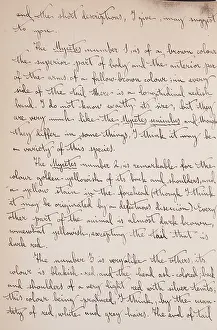 and the short descriptions, I give, may suggest
to you.
The Mycetes number 1 is of a brown colour
the superior part of body and the anterior par
of the arms of a fellow-brown colour; in every
side of the tail there is a longitudinal redish
band. I do not know exactly its size, but they
are very much like the Mycetes seniculus and though
they differ in some things, I think it may be
a variety of this species.
The Mycetes number 2 is remarkable for the
colour golden-yellowish of its back and shoulders, and
a yellow stain in the forehead (though, I think
it may be originated by a definitous desercion). Every
other part of the animal is almost dark brown,
somewhat yellowish, excepting the tail that is
dark red.
The number 3 is very alike the others: its
colour is blakish-red, and the head ash-colored, back
and shoulders of a very light red with silver-tints,
this colour being produced, I think, by the
ty of red, white, and grey hairs. The end of tail